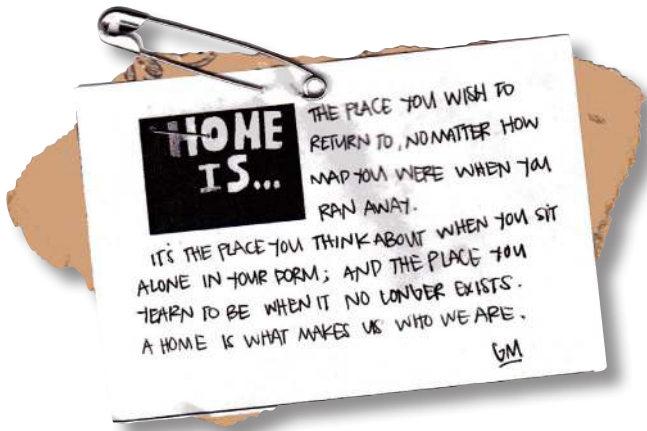 HOME
IS...
THE PLACE YOU WISH TO
RETURN TO, NO MATTER HOW
MAD YOU WERE WHEN YOU
RAN AWAY.
IT'S THE PLACE YOU THINK ABOUT WHEN YOU SIT
ALONE IN YOUR DORM; AND THE PLACE YOU
YEARN TO BE WHEN IT NO LONGER EXISTS.
A HOME IS WHAT MAKES US WHO WE ARE.
GM